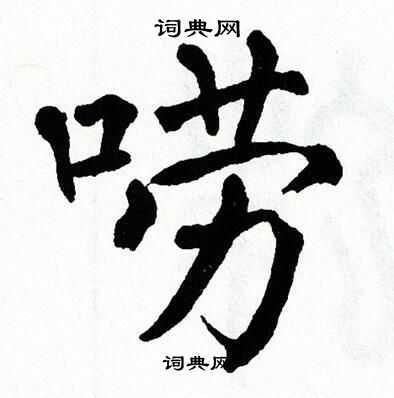 词典网
唠
词典网